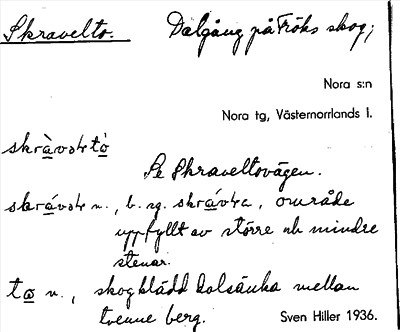 Skravelto. Dalgång på Fröks skog;
Nora s:n
Nora tg, Västernorrlands l.
skràvəltò
Se Skraveltovägen.
n., b. sg. område
uppfyllt av större och mindre
stenar.
to n., skogklädd dalsänka mellan
tvenne berg. Sven Hiller 1936.